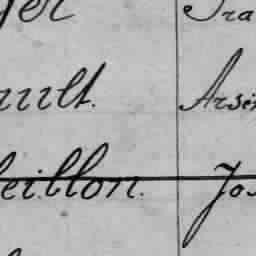 ger Fra
ault. Arsè
beillon. Jos